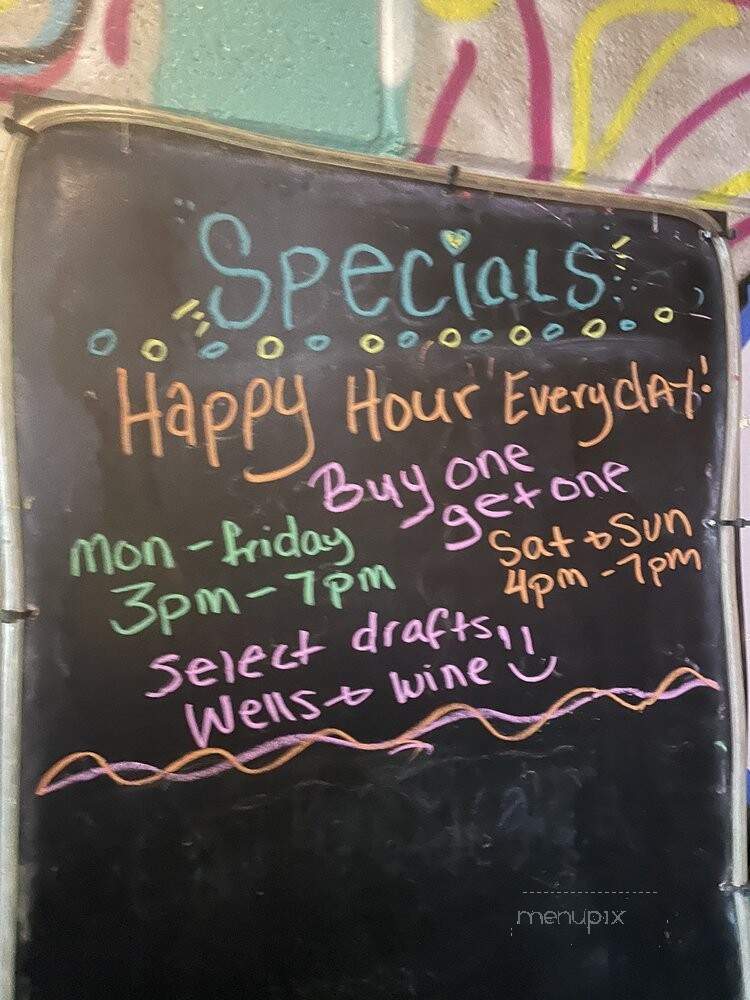 Specials
Happy Hour Everyday!
Buy one
get one
Mon - friday
3pm - 7pm
Sat + Sun
4pm - 7pm
Select drafts,
Wells + wine
menupix